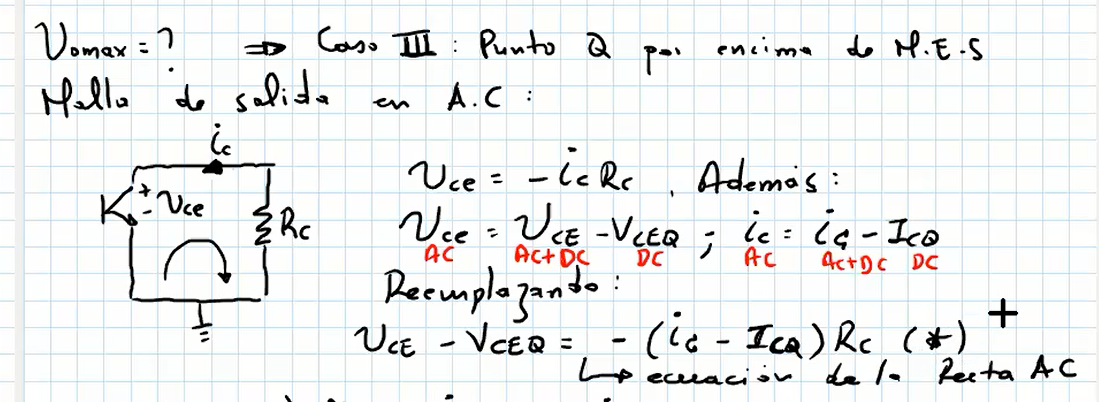 Vomax = ? ⇒ Caso III : Punto Q por encima de M.E.S
Malla de salida en A.C :
ic
+
- Vce
Rc
Vce = - ic Rc , Además :
Vce = VCE - VCEQ ; ic = iC - ICQ
AC AC+DC DC AC AC+DC DC
Reemplazando :
VCE - VCEQ = - (iC - ICQ) Rc (*)
↳ ecuación de la Recta AC